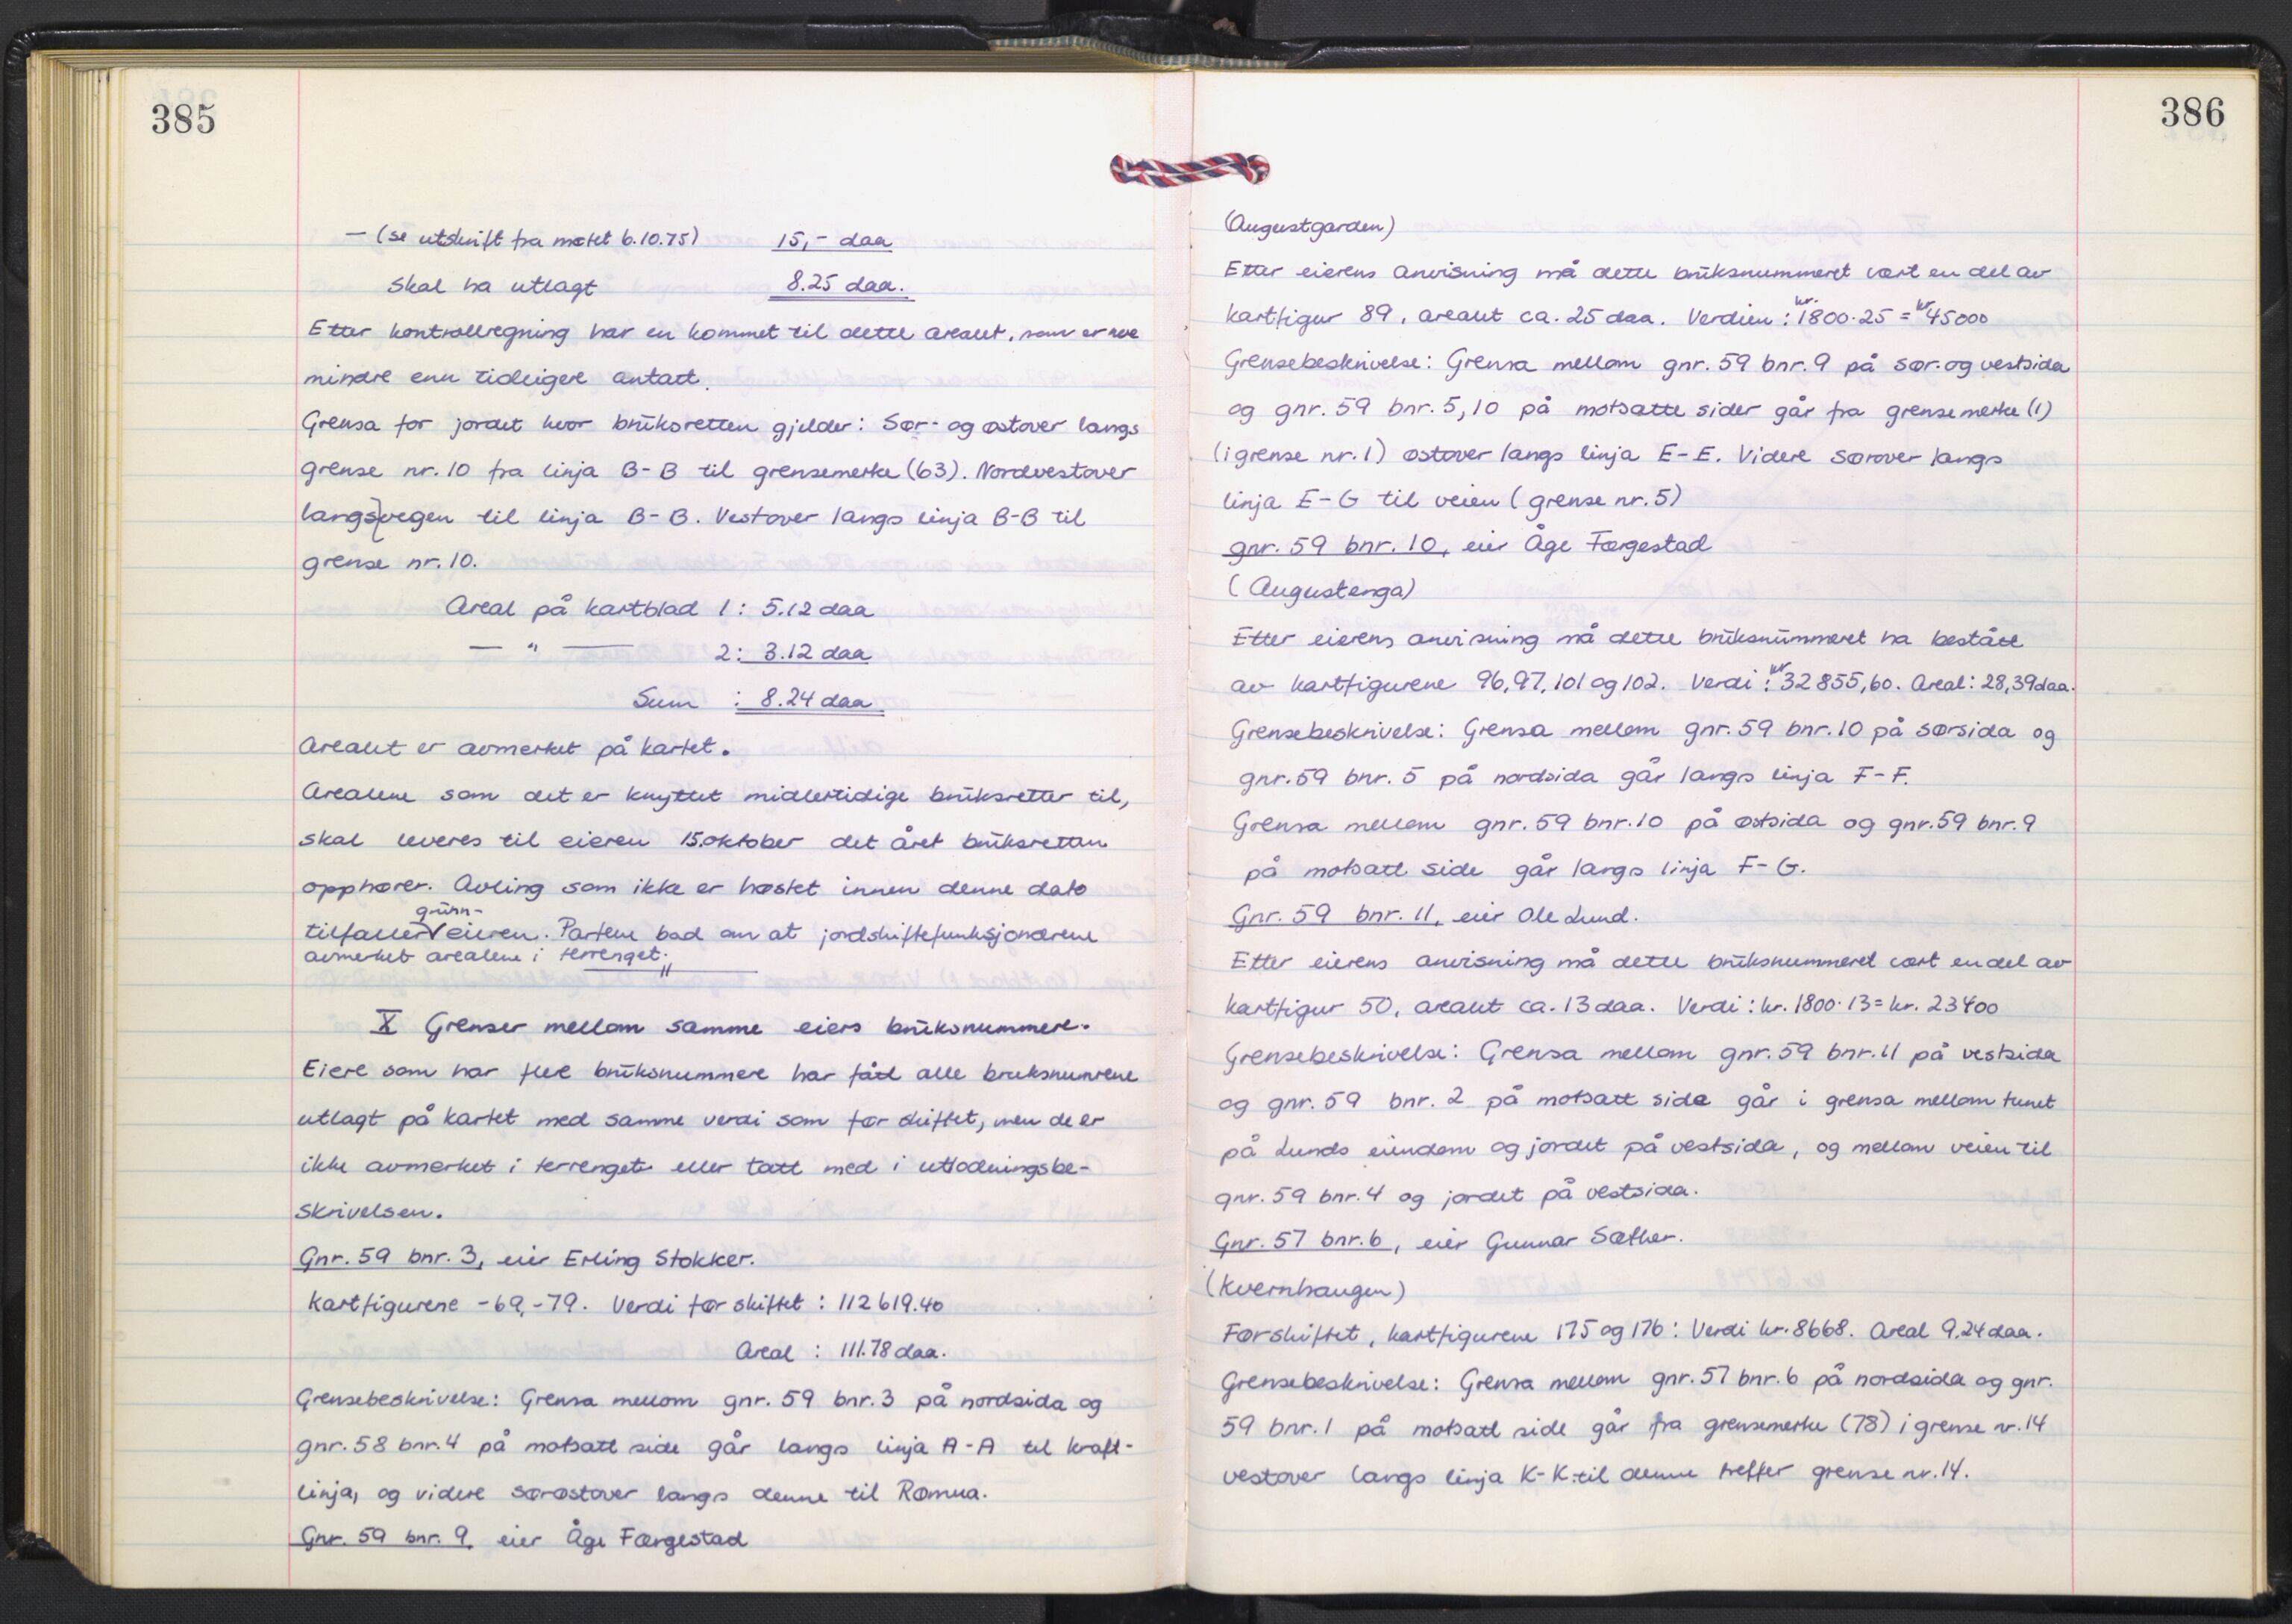 385
— (se utskrift fra møtet 6.10.75) 15,- daa
skal ha utlagt 8.25 daa.
Etter kontrollregning har en kommet til dette arealet, som er noe
mindre enn tidligere antatt.
Grensa for jordet hvor bruksretten gjelder: Sør- og østover langs
grense nr. 10 fra linja B-B til grensemerke (63). Nordvestover
langs vegen til linja B-B. Vestover langs linja B-B til
grense nr. 10.
Areal på kartblad 1: 5.12 daa
— " — 2: 3.12 daa
Sum : 8.24 daa
Arealet er avmerket på kartet.
Arealene som det er knyttet midlertidige bruksretter til,
skal leveres til eieren 15. oktober det året bruksretten
opphører. Avling som ikke er høstet innen denne dato
tilfaller grunn-eieren. Partene bad om at jordskiftefunksjonærene
avmerket arealene i terrenget.
— " —
X Grenser mellom samme eiers bruksnummere.
Eiere som har flere bruksnummere har fått alle bruksnumrene
utlagt på kartet med samme verdi som før skiftet, men de er
ikke avmerket i terrenget eller tatt med i utlodningsbe-
skrivelsen.
Gnr. 59 bnr. 3, eier Erling Stokker.
Kartfigurene -69,-79. Verdi før skiftet : 112619.40
Areal : 111.78 daa.
Grensebeskrivelse: Grensa mellom gnr. 59 bnr. 3 på nordsida og
gnr. 58 bnr. 4 på motsatt side går langs linja A-A til kraft-
linja, og videre sørøstover langs denne til Rømua.
Gnr. 59 bnr. 9, eier Åge Færgestad
386
(Augustgarden)
Etter eierens anvisning må dette bruksnummeret vært en del av
kartfigur 89, arealet ca. 25 daa. Verdien: kr. 1800·25 = kr 45000
Grensebeskrivelse: Grensa mellom gnr. 59 bnr. 9 på sør- og vestsida
og gnr. 59 bnr. 5,10 på motsatte sider går fra grensemerke (1)
(i grense nr. 1) østover langs linja E-E. Videre sørover langs
linja E-G til veien (grense nr. 5)
gnr. 59 bnr. 10, eier Åge Færgestad
(Augustenga)
Etter eierens anvisning må dette bruksnummeret ha bestått
av kartfigurene 96,97,101 og 102. Verdi: kr 32855,60. Areal: 28,39 daa.
Grensebeskrivelse: Grensa mellom gnr. 59 bnr. 10 på sørsida og
gnr. 59 bnr. 5 på nordsida går langs linja F-F.
Grensa mellom gnr. 59 bnr. 10 på østsida og gnr. 59 bnr. 9
på motsatt side går langs linja F-G.
Gnr. 59 bnr. 11, eier Ole Lund.
Etter eierens anvisning må dette bruksnummeret vært en del av
kartfigur 50, arealet ca. 13 daa. Verdi: kr. 1800·13 = kr. 23400
Grensebeskrivelse: Grensa mellom gnr. 59 bnr. 11 på vestsida
og gnr. 59 bnr. 2 på motsatt side går i grensa mellom tunet
på Lunds eiendom og jordet på vestsida, og mellom veien til
gnr. 59 bnr. 4 og jordet på vestsida.
Gnr. 57 bnr. 6, eier Gunnar Sæther.
(Kvernhaugen)
Før skiftet, kartfigurene 175 og 176: Verdi kr. 8668. Areal 9.24 daa.
Grensebeskrivelse: Grensa mellom gnr. 57 bnr. 6 på nordsida og gnr.
59 bnr. 1 på motsatt side går fra grensemerke (78) i grense nr. 14
vestover langs linja K-K til denne treffer grense nr. 14.